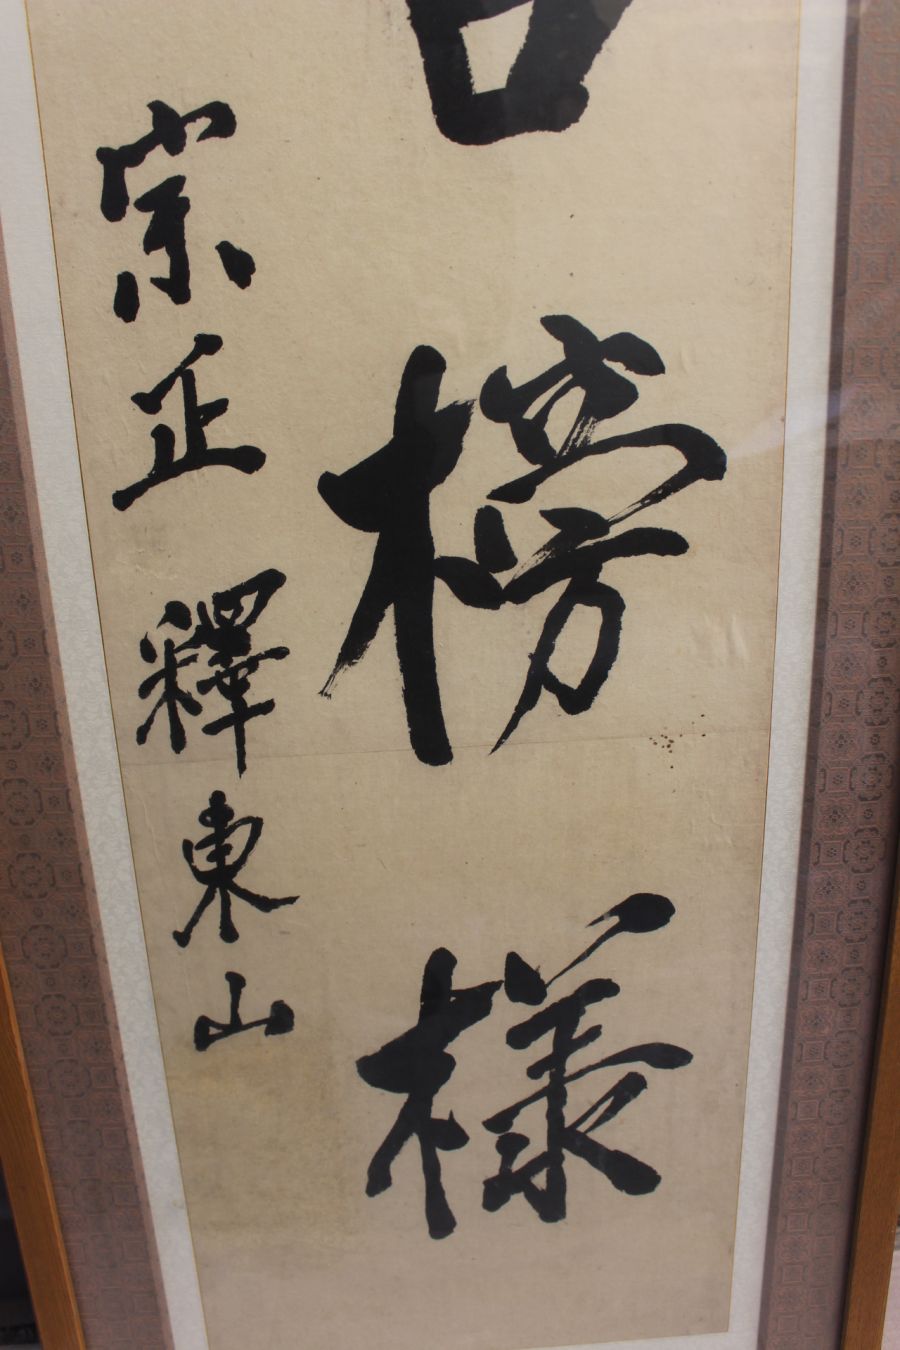 榜様
宗正釋東山